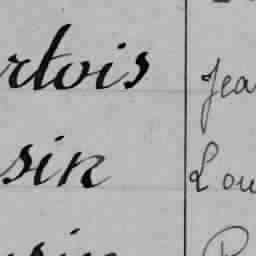 rtois Jea
sin Lou